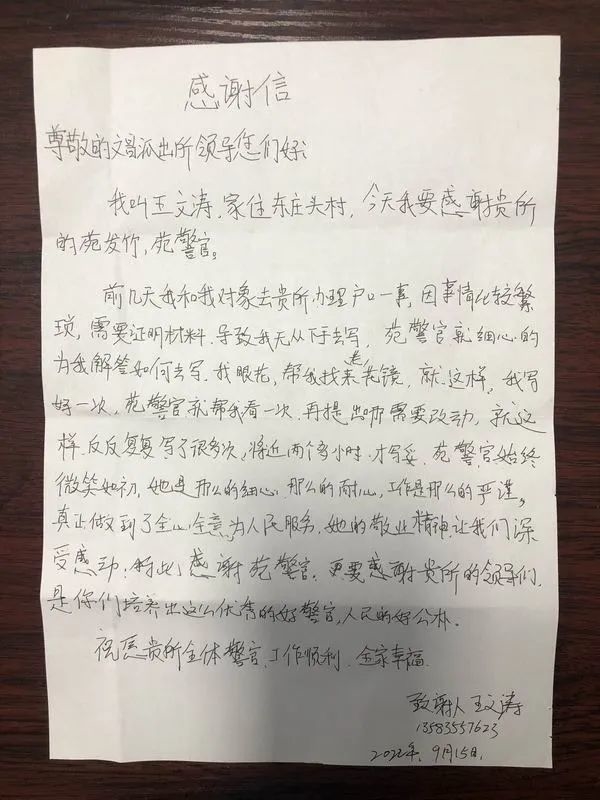 感谢信
尊敬的文哥派出所领导您们好:
我叫王文涛,家住东庄头村,今天我要感谢贵所
的苑发竹,苑警官。
前几天我和我对象去贵所办理户口一事,因事情比较繁
琐,需要证明材料.导致我无从下手去写,苑警官就细心的
为我解答如何去写.我眼花,帮我找来老花镜,就这样,我写
好一次,苑警官就帮我看一次.再提出哪需要改动,就这
样.反反复复写了很多次,将近两个多小时.才写妥.苑警官始终
微笑如初,她是那么的细心.那么的耐心,工作是那么的严谨。
真正做到了全心全意为人民服务.她的敬业精神让我们深
受感动.特此感谢苑警官.更要感谢贵所的领导们.
是你们培养出这么优秀的好警官,人民的好公朴.
祝愿贵所全体警官,工作顺利.全家幸福.
致谢人王文涛
13583557623
2022年.9月15日.